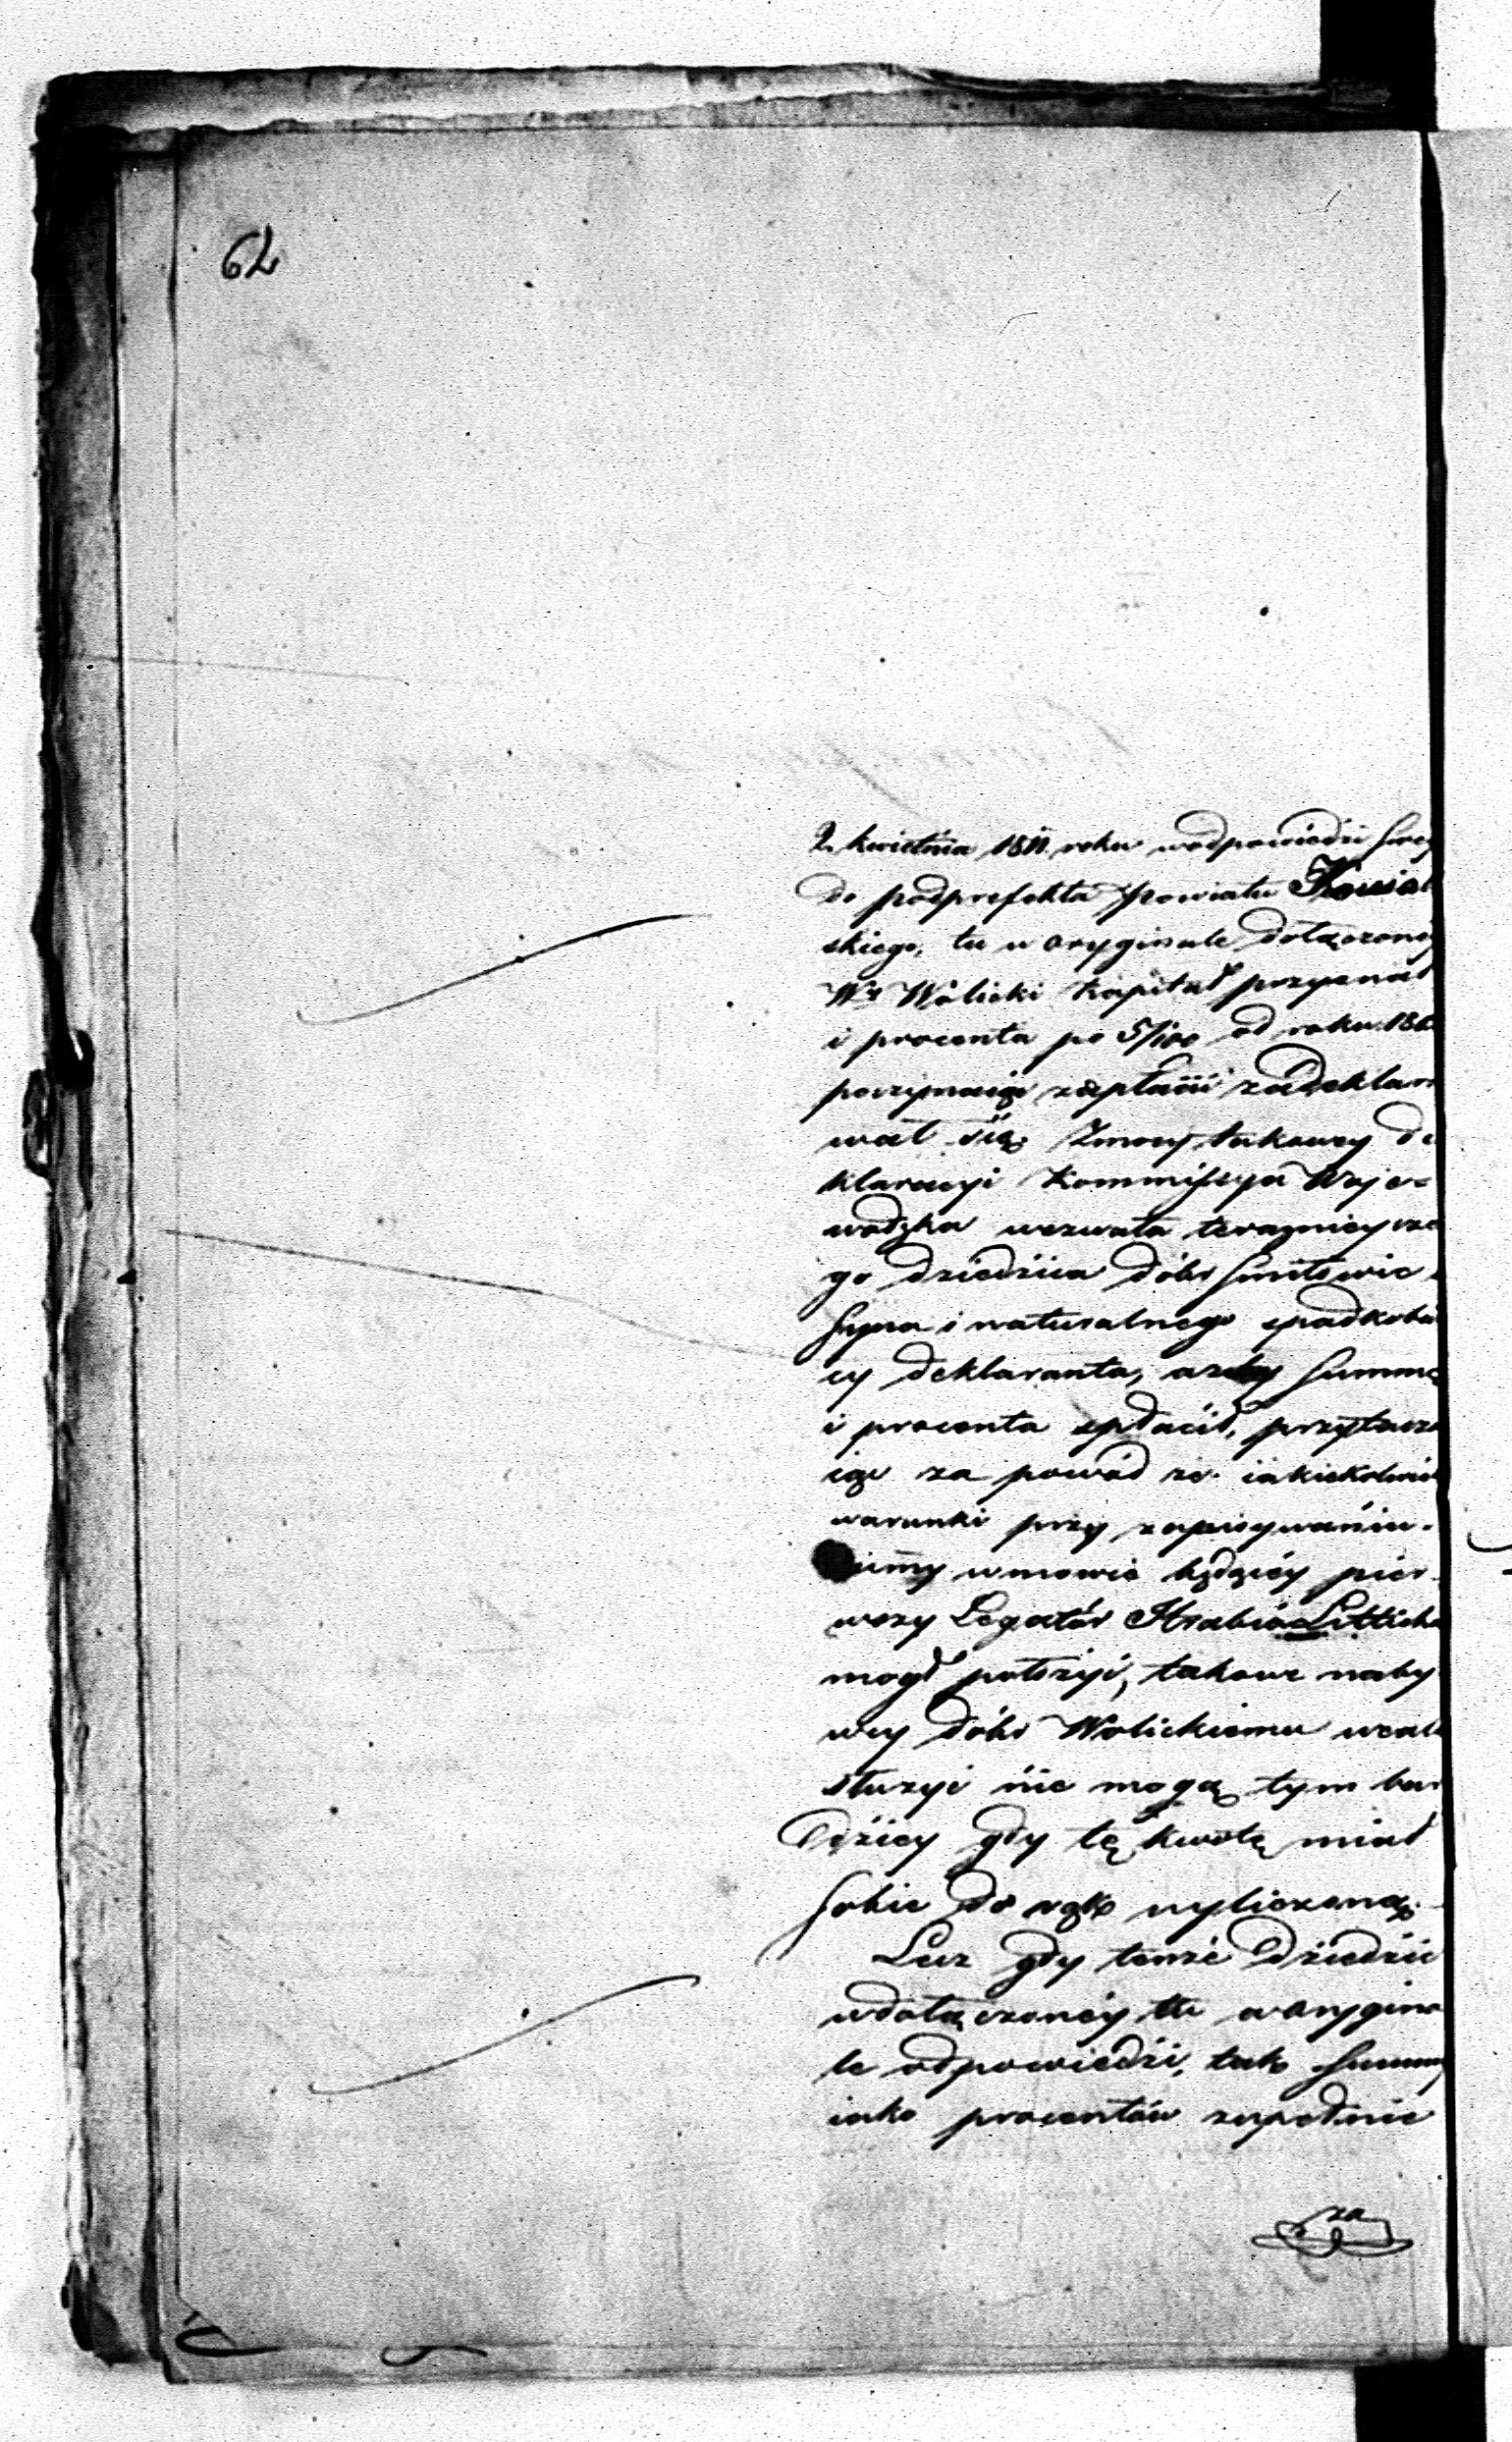 62
2. kwietnia 1811. roku w odpowiedzi swey
do podprefekta Powiatu Kowal
skiego, tu w oryginale dołączoney
Wy Wolicki Kapitał przyznał
i procenta po 5/100 od roku 180
poczynaiąc zapłacić zadeklaro
wał się. Zmocy takowey de
klaracyi Kommissya Woje=
wodzka wezwała teraznieysze
go dziedzica dóbr Smiłowic
Syna i naturalnego spadkobier
cy deklaranta, azeby Summę
i procenta spłacił, przytacza
iąc za powód ze iakiekolwiek
warunki przy zapisywaniu
Summy w mowie będącéy pier
wszy Legatór Hrabia
mogł połozyć, takowe naby
wcy dóbr Wolickiemu wcale
słuzyć nie mogą tym bar
dziey gdy tę kwotę miał
sobie do rąk wyliczoną.
Lecz gdy tenże Dziedzic
w dołączonéy tu w orygina
le odpowiedzi, tak Summy
iako procentów zupełnie
za